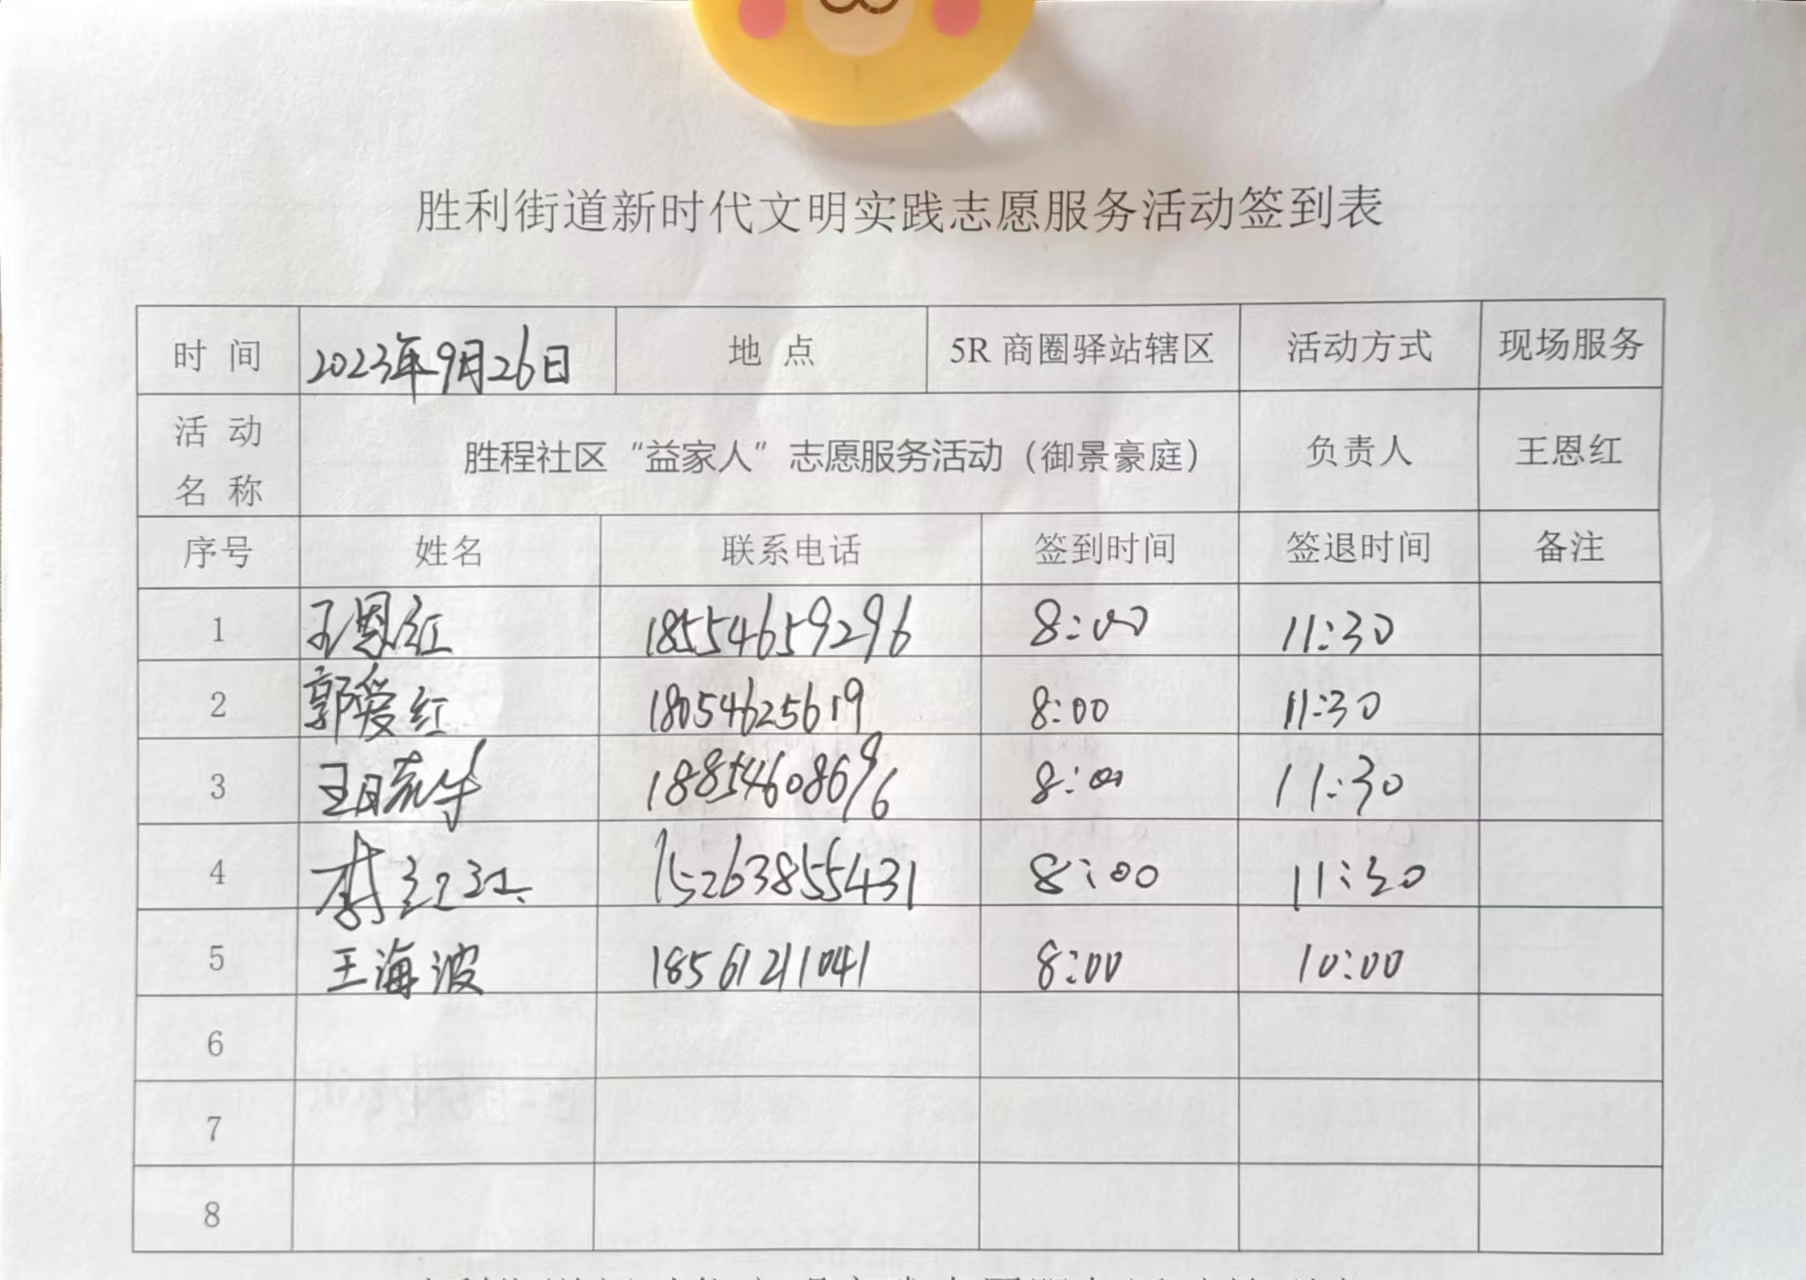 胜利街道新时代文明实践志愿服务活动签到表
时 间 2023年9月26日 地 点 5R 商圈驿站辖区 活动方式 现场服务
活 动
名 称
胜程社区“益家人”志愿服务活动（御景豪庭） 负责人 王恩红
序号 姓名 联系电话 签到时间 签退时间 备注
1 王恩红 18554659296 8:00 11:30
2 郭爱红 18054625619 8:00 11:30
3 18854608696 8:00 11:30
4 李红红 15263855431 8:00 11:30
5 王海波 18561211041 8:00 10:00
6
7
8